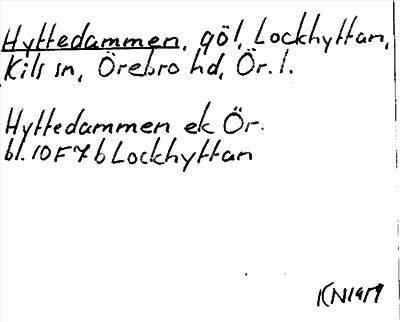 Hyttedammen, göl, Lockhyttan,
Kils sn, Örebro hd, Ör. l.
Hyttedammen ek Ör.
bl. 10 F 7 b Lockhyttan